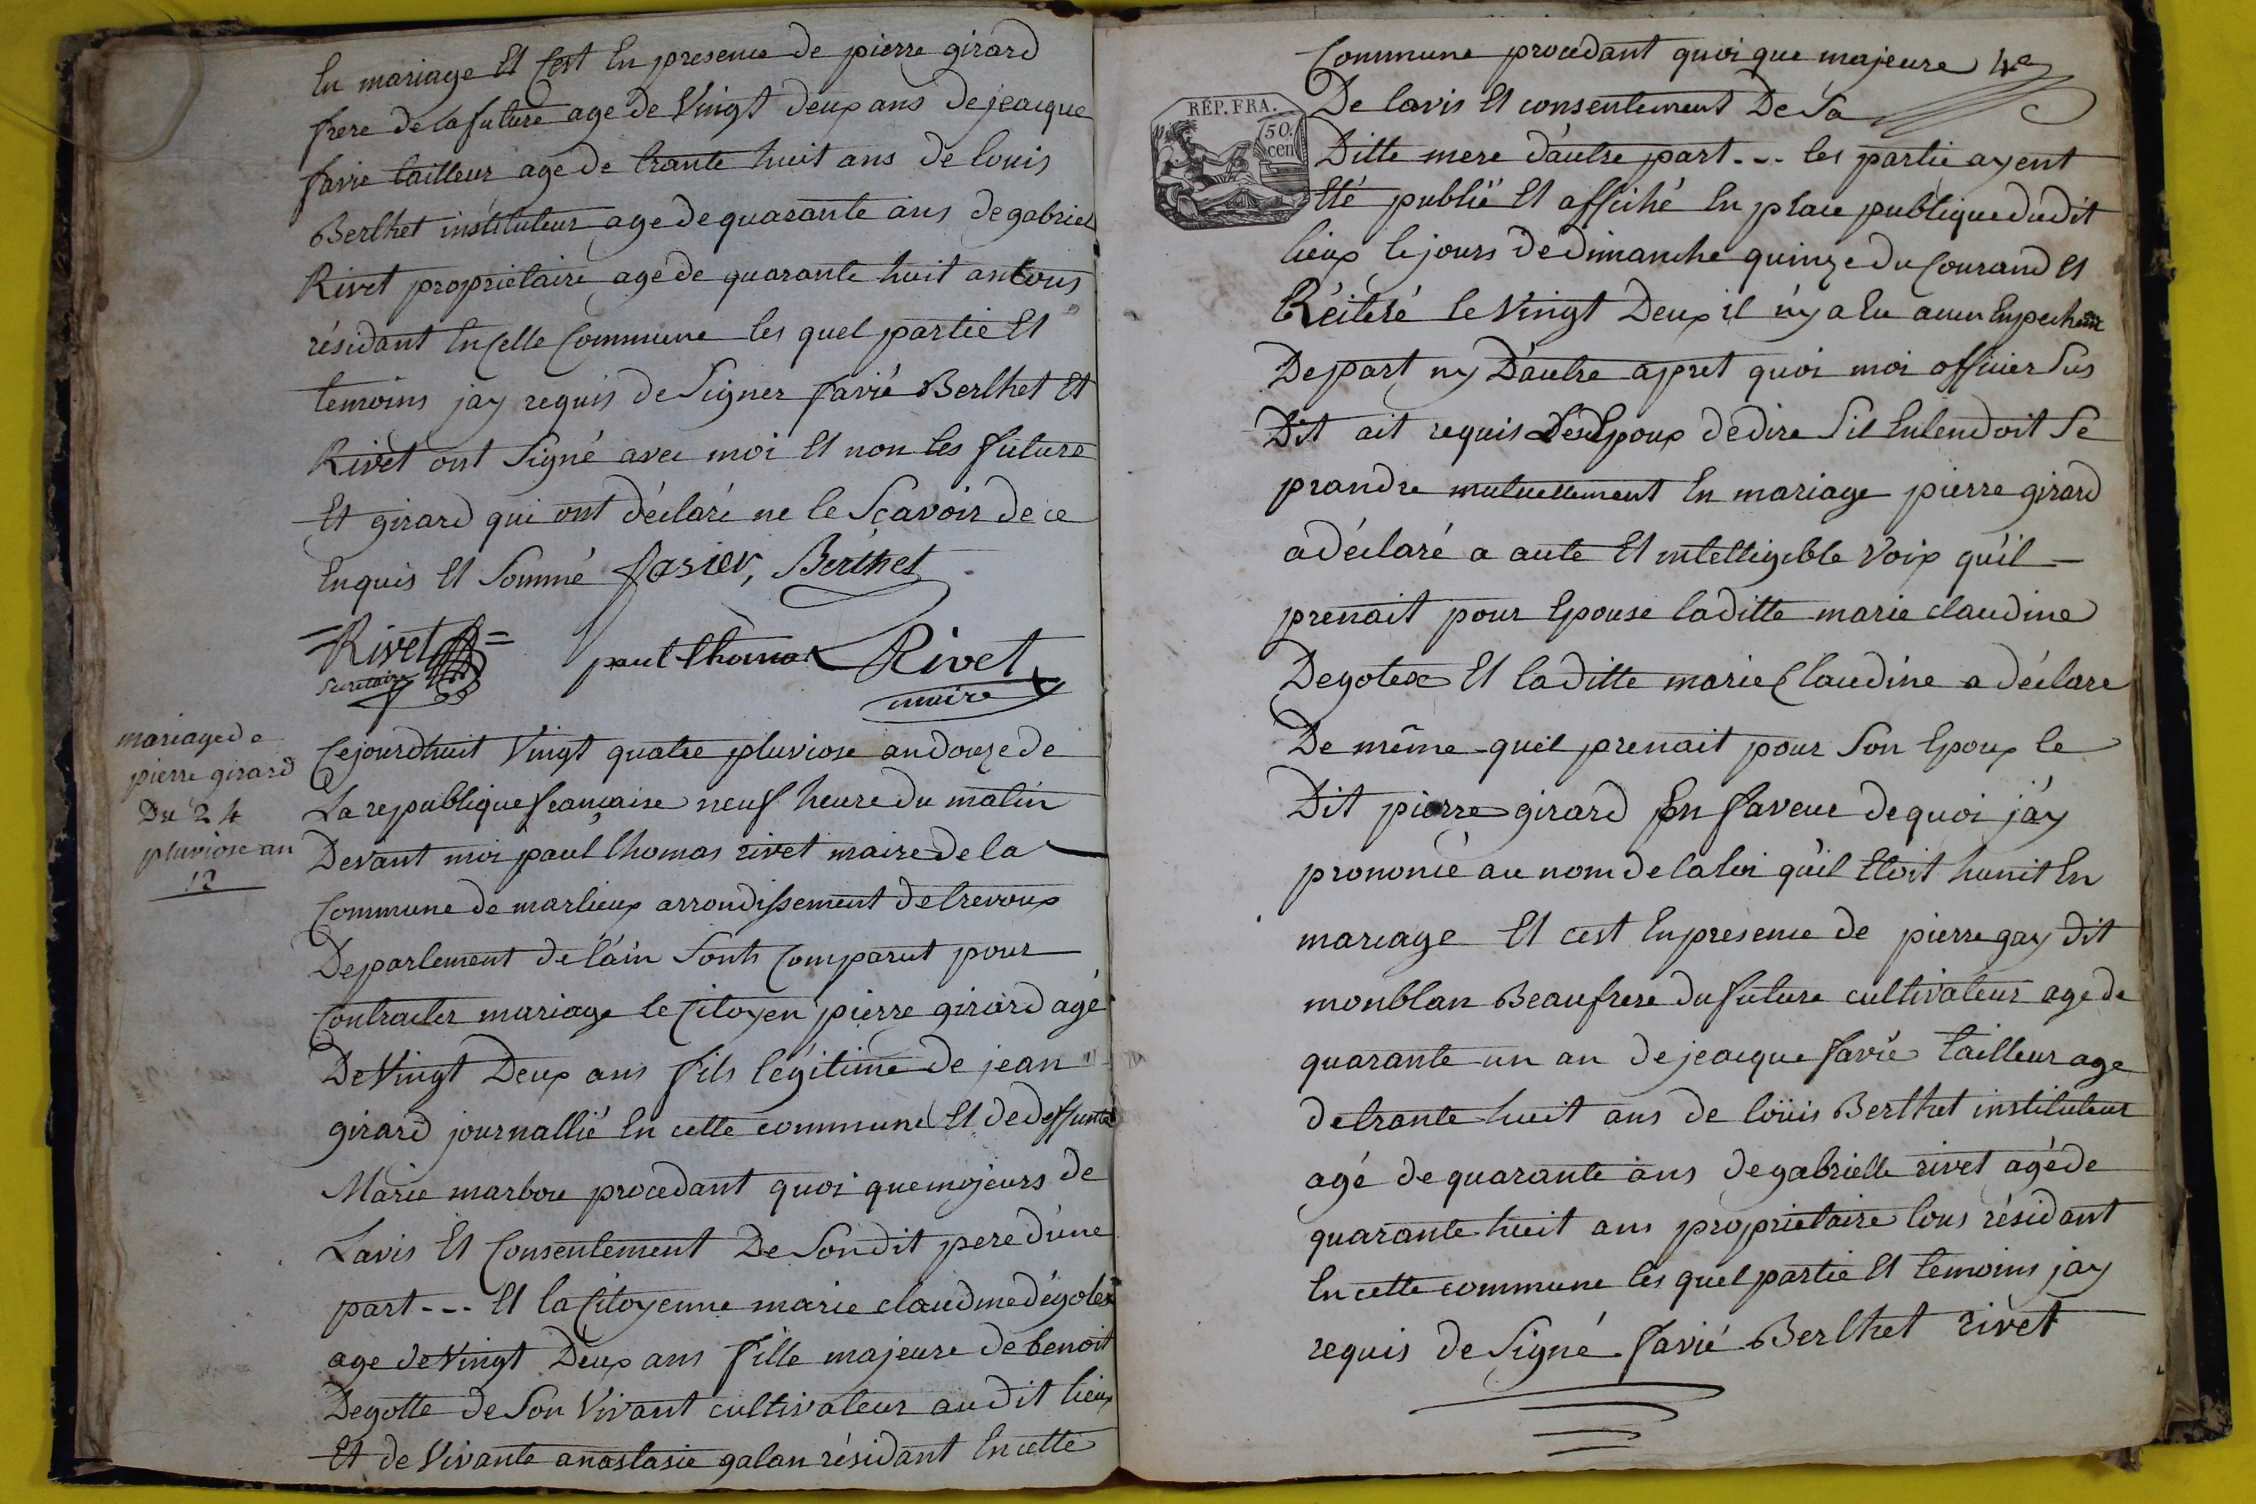 En mariage Et Cest En presence de pierre girard
frere de la future age de Vingt deux ans de jeacque
favre tailleur age de trante huit ans de louis
Berthet instituteur age de quarante ans de gabriel
Rivet proprietaire age de quarante huit ans tous
résidant En Cette Commune les quel partie Et
temoins jay requis de Signer favié Berthet Et
Rivet ont Signé avec moi Et non les future
Et girard qui ont déclaré ne le Sçavoir de ce
Enquis Et Sommé favier, Berthet
=Rivet=
Secretaire
paul thomas Rivet
maire
mariage de
pierre girard
Du 24
pluviose an
12
Cejourdhuit Vingt quatre pluviose an douze de
La republique française neuf heure du matin
Devant moi paul thomas rivet maire de la
Commune de marlieux arrondissement de trevoux
Departement de láin Sonts Comparut pour
Contracter mariage le Citoyen pierre girard agé
De Vingt Deux ans fils légitime de jean
girard journallié En cette commune Et de deffunte
Marie marbou procedant quoi que mojeurs de
Lavis Et Consentement De Son dit pere d'une
part--- Et la Citoyenne marie claudine dégotex
age de Vingt Deux ans fille majeure de benoit
Degotte de Son Vivant cultivateur au dit lieux
Et de Vivante anastasie galan résidant En cette
Commune procedant quoi que majeure 4e
REP. FRA.
50.
cen
De lavis Et consentement De Sa
Ditte mere dáutre part--- les partie ayent
Eté publié Et affiché En place publique du dit
lieux le jours de dimanche quinze du Courand Et
Réiteré le Vingt Deux il n'y a Eu aucun Enpechem
De part ny D'autre apret quoi moi officier Sus
Dit ait requis Les Epoux de dire Sil Entendoit Se
prandre mutuellement En mariage pierre girard
a déclaré a aute Et intelligible Voix qu'il
prenait pour Epouse la ditte marie claudine
Degotex Et la ditte marie Claudine a déclare
De même quil prenait pour Son Epoux le
Dit pierre girard En faveur de quoi j'ay
prononcé au nom de la loi qu'il Etoit hunit En
mariage Et cest En presence de pierre gay dit
monblan Beaufrere du future cultivateur age de
quarante un an de jeacque favié tailleur age
de trante huit ans de loüis Berthet instituteur
agé de quarante ans de gabrielle rivet agé de
quarante huit ans proprietaire tous résidant
En cette commune les quel partie Et temoins jay
requis de Signé favié Berthet rivet